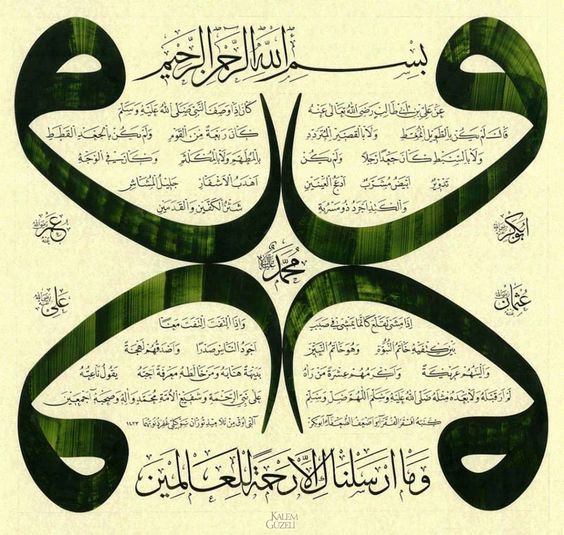 بسم الله الرحمن الرحيم
عن علي بن ابي طالب رضي الله تعالى عنه كان اذا وصف النبي صلى الله عليه وسلم
قال لم يكن بالطويل الممغط ولا بالقصير المتردد كان ربعة من القوم ولم يكن بالجعد القطط
ولا بالسبط كان جعدا رجلا ولم يكن بالمطهم ولا بالمكلثم وكان في الوجه
تدوير ابيض مشرب ادعج العينين اهدب الاشفار جليل المشاش
والكتد اجرد ذو مسربة شثن الكفين والقدمين
ابوبكر رضي الله عنه
عمر رضي الله عنه
محمد عليه السلام
عثمان رضي الله عنه
علي رضي الله عنه
اذا مشى تقلع كانما يمشي في صبب واذا التفت التفت معا
بين كتفيه خاتم النبوة وهو خاتم النبيين اجود الناس صدرا واصدقهم لهجة
والينهم عريكة واكرمهم عشرة من رآه بديهة هابه ومن خالطه معرفة احبه يقول ناعته
لم ار قبله ولا بعده مثله صلى الله عليه وسلم اللهم صل وسلم على نبي الرحمة وشفيع الامة محمد وآله وصحبه اجمعين
كتبه افقر الفقراء واضعف الضعفاء ابوبكر ١٤٢٣
وما ارسلناك الا رحمة للعالمين
KALEM GÜZELİ